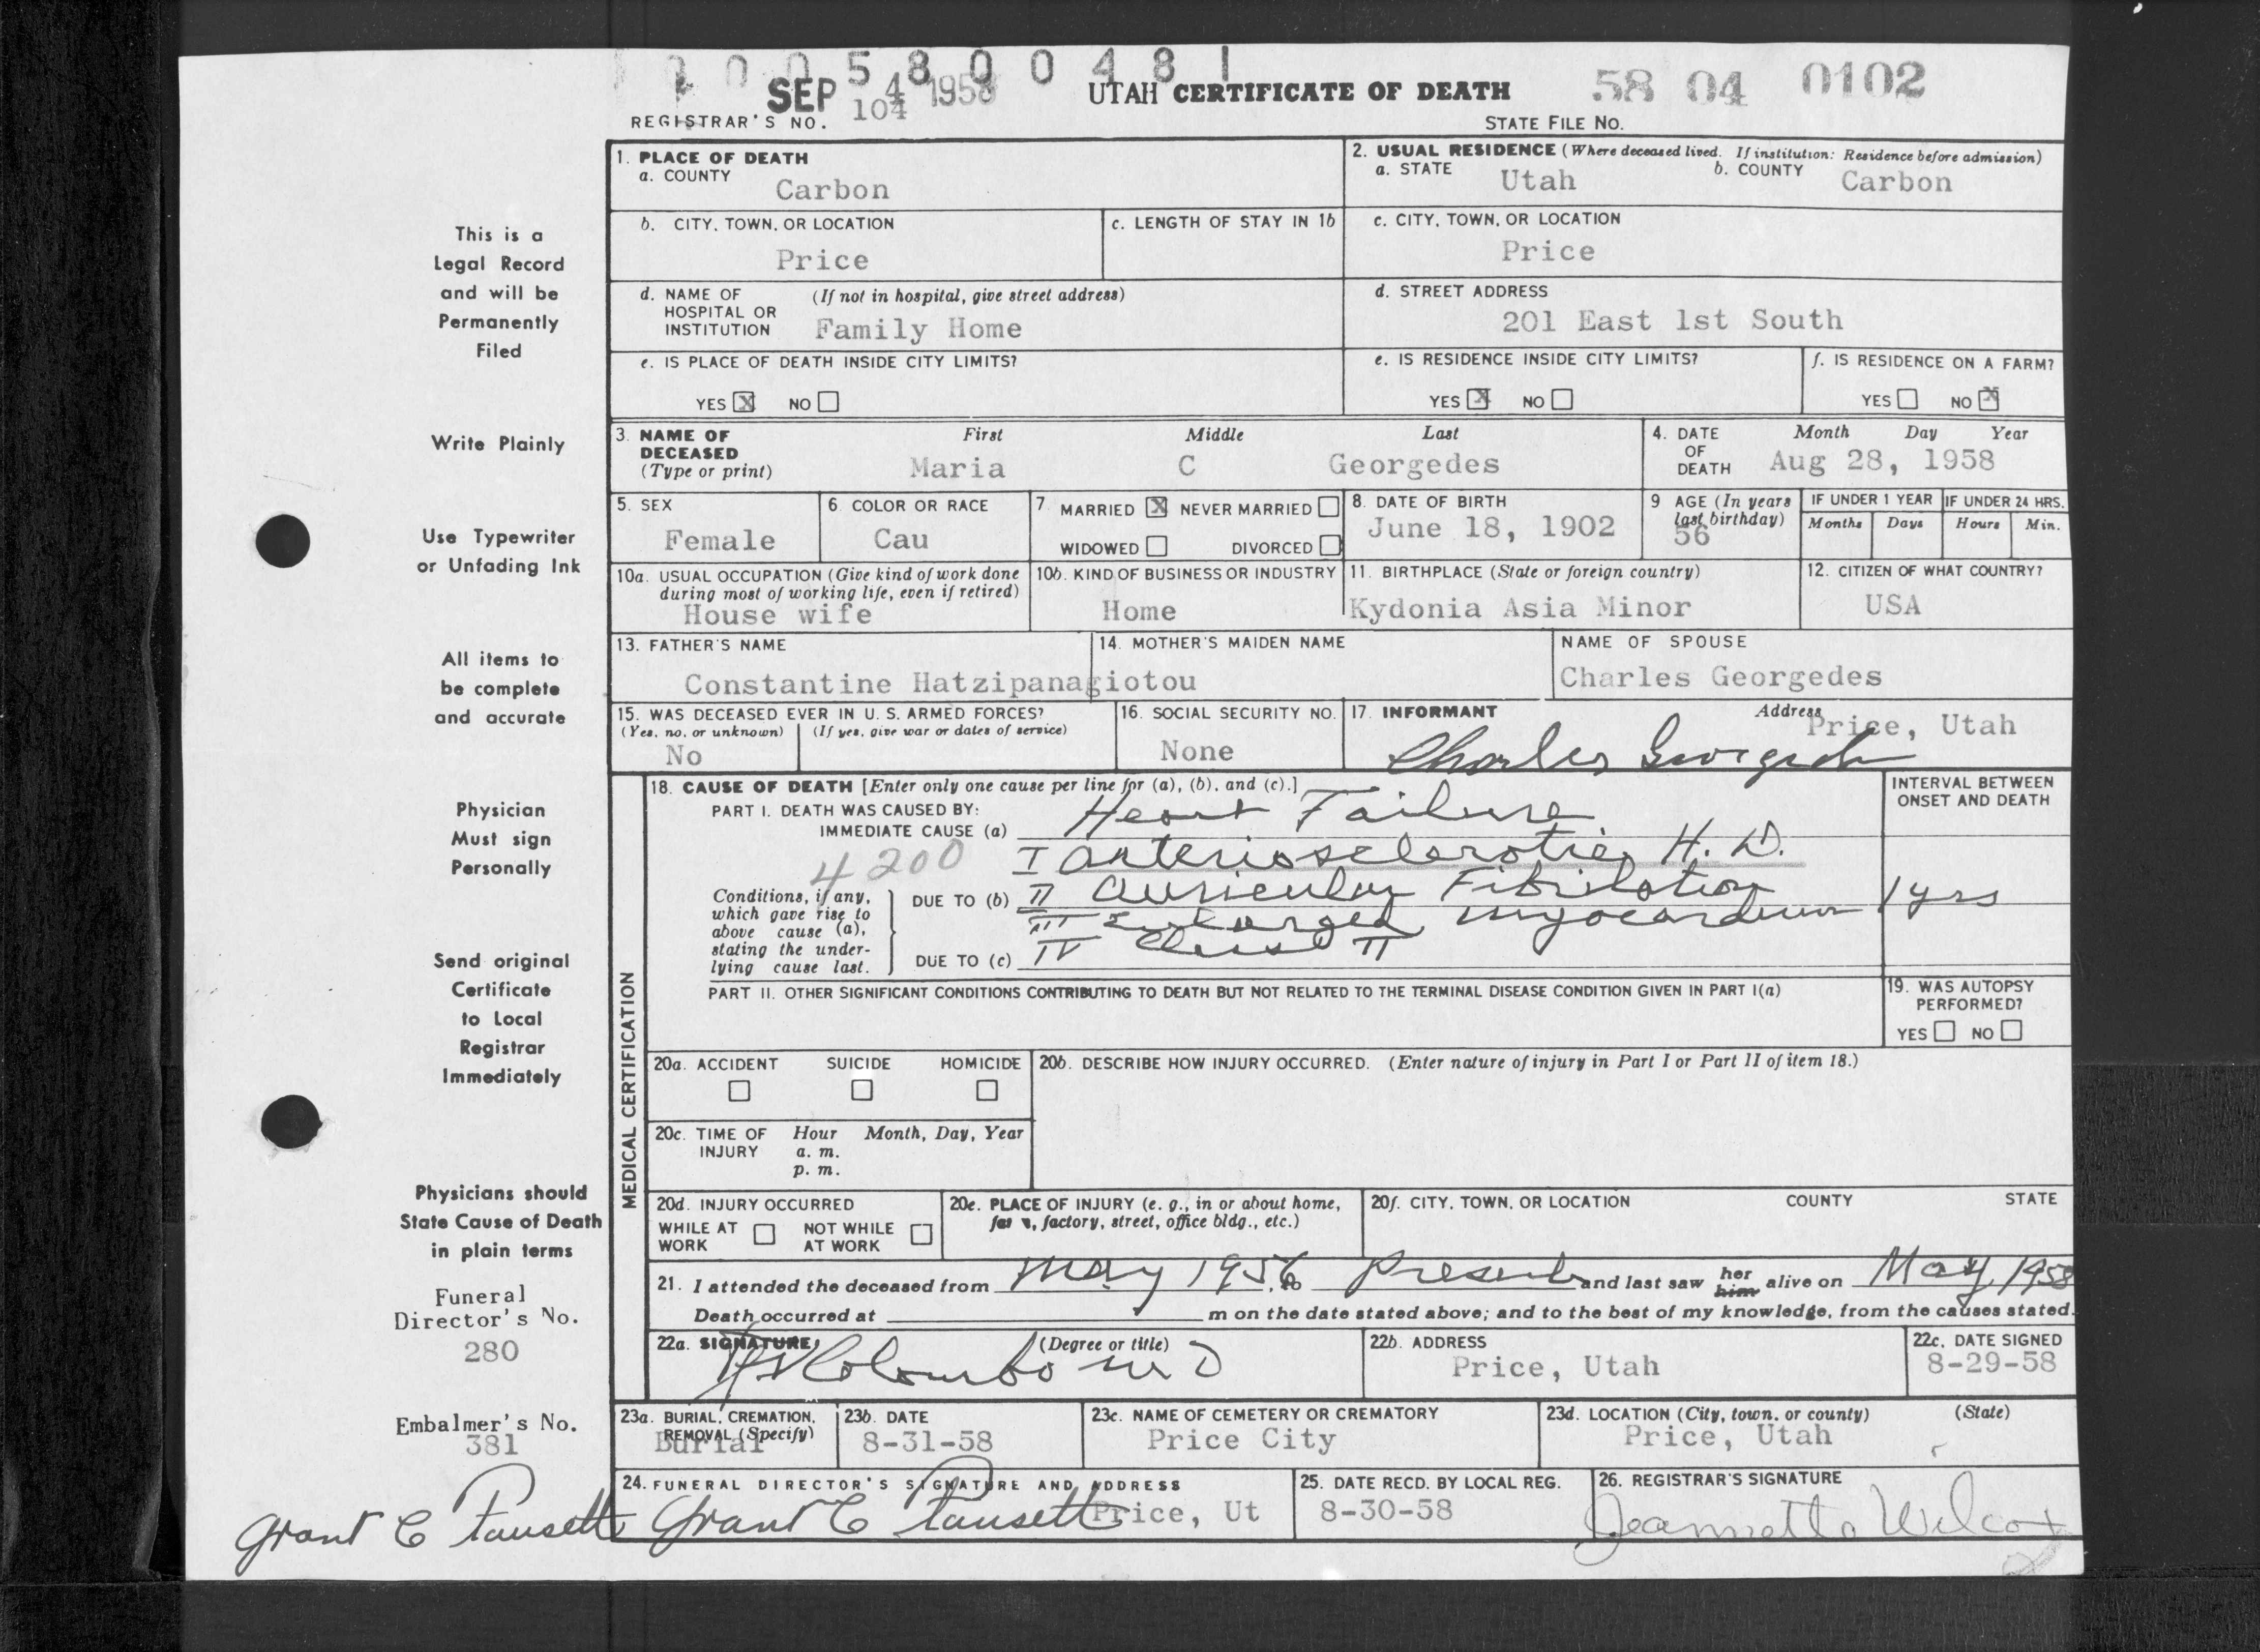 1 0 0 5 8 0 0 4 8 1
SEP 4 1958
UTAH CERTIFICATE OF DEATH
58 04 0102
REGISTRAR'S NO. 104
STATE FILE NO.
This is a
Legal Record
and will be
Permanently
Filed
Write Plainly
Use Typewriter
or Unfading Ink
All items to
be complete
and accurate
Physician
Must sign
Personally
Send original
Certificate
to Local
Registrar
Immediately
Physicians should
State Cause of Death
in plain terms
Funeral
Director's No.
280
Embalmer's No.
381
1. PLACE OF DEATH
a. COUNTY
Carbon
2. USUAL RESIDENCE (Where deceased lived. If institution: Residence before admission)
a. STATE Utah b. COUNTY Carbon
b. CITY, TOWN, OR LOCATION
Price
c. LENGTH OF STAY IN 1b
c. CITY, TOWN, OR LOCATION
Price
d. NAME OF (If not in hospital, give street address)
HOSPITAL OR
INSTITUTION Family Home
d. STREET ADDRESS
201 East 1st South
e. IS PLACE OF DEATH INSIDE CITY LIMITS?
YES X NO
e. IS RESIDENCE INSIDE CITY LIMITS?
YES X NO
f. IS RESIDENCE ON A FARM?
YES NO X
3. NAME OF DECEASED
(Type or print)
First Middle Last
Maria C Georgedes
4. DATE OF DEATH
Month Day Year
Aug 28, 1958
5. SEX
Female
6. COLOR OR RACE
Cau
7. MARRIED X NEVER MARRIED
WIDOWED DIVORCED
8. DATE OF BIRTH
June 18, 1902
9 AGE (In years
last birthday)
56
IF UNDER 1 YEAR
Months Days
IF UNDER 24 HRS.
Hours Min.
10a. USUAL OCCUPATION (Give kind of work done
during most of working life, even if retired)
House wife
10b. KIND OF BUSINESS OR INDUSTRY
Home
11. BIRTHPLACE (State or foreign country)
Kydonia Asia Minor
12. CITIZEN OF WHAT COUNTRY?
USA
13. FATHER'S NAME
Constantine Hatzipanagiotou
14. MOTHER'S MAIDEN NAME
NAME OF SPOUSE
Charles Georgedes
15. WAS DECEASED EVER IN U. S. ARMED FORCES?
(Yes, no, or unknown) (If yes, give war or dates of service)
No
16. SOCIAL SECURITY NO.
None
17. INFORMANT Address
Price, Utah
Charles Georgedes
18. CAUSE OF DEATH [Enter only one cause per line for (a), (b), and (c).]
PART I. DEATH WAS CAUSED BY:
IMMEDIATE CAUSE (a) Heart Failure
4200
I arteriosclerotic H. D.
Conditions, if any,
which gave rise to
above cause (a),
stating the under-
lying cause last.
DUE TO (b) II auricular Fibrilation
III Enlarged myocardium
DUE TO (c) IV Class II
INTERVAL BETWEEN
ONSET AND DEATH
1 yrs
PART II. OTHER SIGNIFICANT CONDITIONS CONTRIBUTING TO DEATH BUT NOT RELATED TO THE TERMINAL DISEASE CONDITION GIVEN IN PART I(a)
19. WAS AUTOPSY
PERFORMED?
YES NO
MEDICAL CERTIFICATION
20a. ACCIDENT SUICIDE HOMICIDE
20b. DESCRIBE HOW INJURY OCCURRED. (Enter nature of injury in Part I or Part II of item 18.)
20c. TIME OF INJURY
Hour Month, Day, Year
a. m.
p. m.
20d. INJURY OCCURRED
WHILE AT WORK
NOT WHILE AT WORK
20e. PLACE OF INJURY (e. g., in or about home,
factory, street, office bldg., etc.)
20f. CITY, TOWN, OR LOCATION COUNTY STATE
21. I attended the deceased from May 1956, to Present and last saw her him alive on May, 1958
Death occurred at m on the date stated above; and to the best of my knowledge, from the causes stated.
22a. SIGNATURE (Degree or title)
Colombo MD
22b. ADDRESS
Price, Utah
22c. DATE SIGNED
8-29-58
23a. BURIAL, CREMATION,
REMOVAL (Specify)
Burial
23b. DATE
8-31-58
23c. NAME OF CEMETERY OR CREMATORY
Price City
23d. LOCATION (City, town, or county) (State)
Price, Utah
24. FUNERAL DIRECTOR'S SIGNATURE AND ADDRESS
Grant C Fausett Grant C Fausett Price, Ut
25. DATE RECD. BY LOCAL REG.
8-30-58
26. REGISTRAR'S SIGNATURE
Jeannetta Wilcox